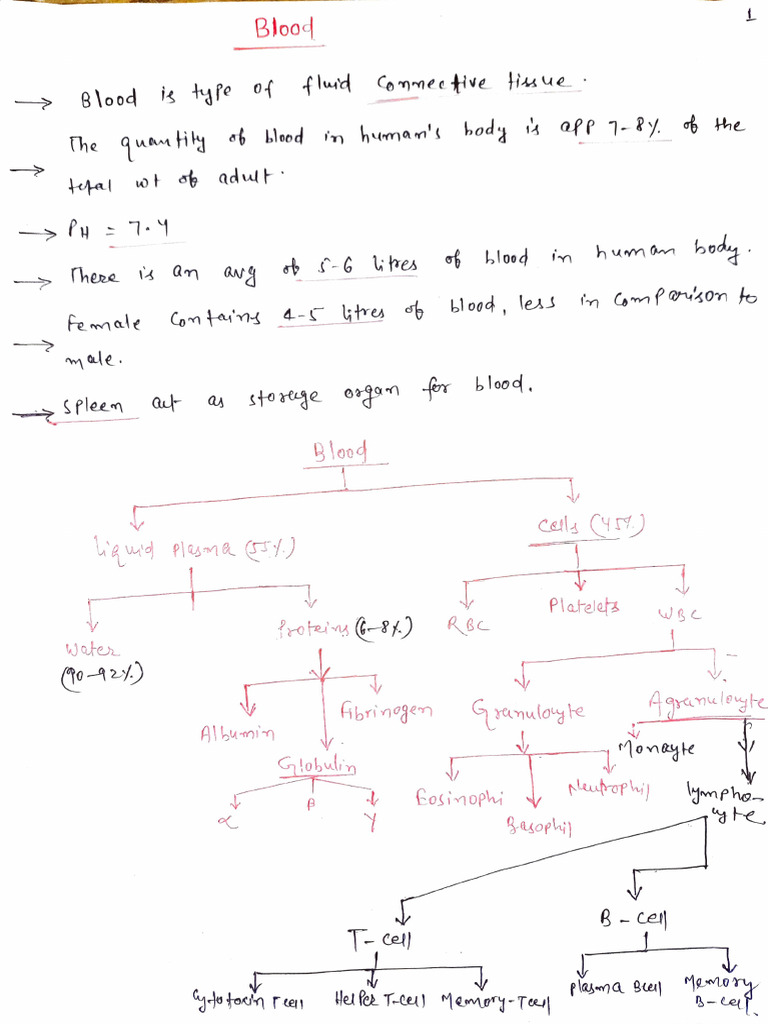 1
Blood
→ Blood is type of fluid connective tissue.
The quantity of blood in human's body is app 7-8% of the
→ total wt of adult.
→ PH = 7.4
→ There is an avg of 5-6 litres of blood in human body.
Female contains 4-5 litres of blood, less in comparison to
→ male.
→ Spleen act as storage organ for blood.
Blood
Liquid plasma (55%)
Cells (45%)
Water
(90-92%)
Proteins (6-8%)
RBC
Platelets
WBC
Albumin
Fibrinogen
Globulin
α
β
γ
Granulocyte
Agranulocyte
Eosinophil
Basophil
Neutrophil
Monocyte
lympho-
cyte
T-cell
B-cell
Cytotoxin T cell
Helper T-cell
Memory-Tcell
plasma Bcell
Memory
B-cell